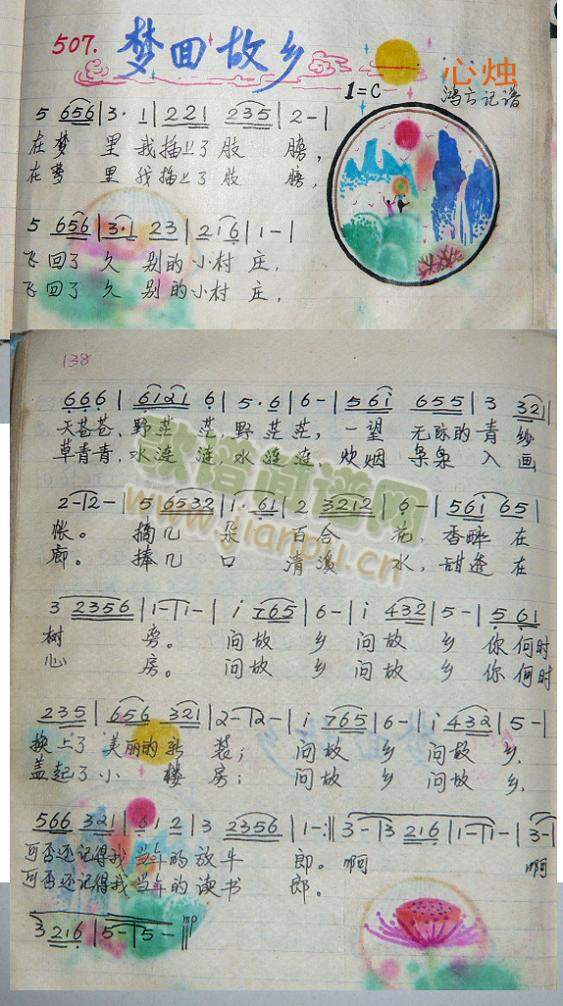 507. 梦回故乡
心烛
1=C 鸿云记谱
5 656|3· 1|2 21 235|2-|
在梦 里 我插上了 肢 膀,
在梦 里 我插上了 肢 膀,
5 656|3·1 23|216|1-|
飞回了 久 别的小村 庄,
飞回了 久 别的小村 庄,
138
666|6121 6|5·6|6-|561 655|3 321|
天苍苍,野茫 茫,野茫 茫, 一望 无际的青 纱
草青青,水涟 涟,水涟 涟, 炊烟 袅袅 入 画
2-|2-|5 6532|1·61|2 3212|6-|561 65|
帐。 摘几 朵 百合 花, 香醉 在
廊。 捧几 口 清溪 水, 甜透 在
3 2356|1-|1-|i 765|6-|i 432|5-|5 61|
树 旁。 问故 乡 问故 乡 你何时
心 房。 问故 乡 问故 乡 你何时
235|656 321|2-|2-|i 765|6-|i 432|5-|
换上了 美丽的新 装; 问故 乡 问故 乡,
盖起了小 楼房; 问故 乡 问故 乡,
566 321|61 2|3 2356|1-:‖3-|3 216|1-|1-|3-|
可否还记得我当年的放牛 郎。 啊 啊
可否还记得我当年的读书 郎。
3 216|5-|5-‖
mp
歌谱简谱网
www.jianpu.cn